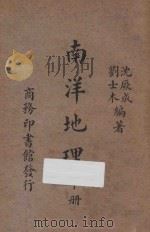 沈厥成
劉士木編著
南洋地理 册
商務印書館發行